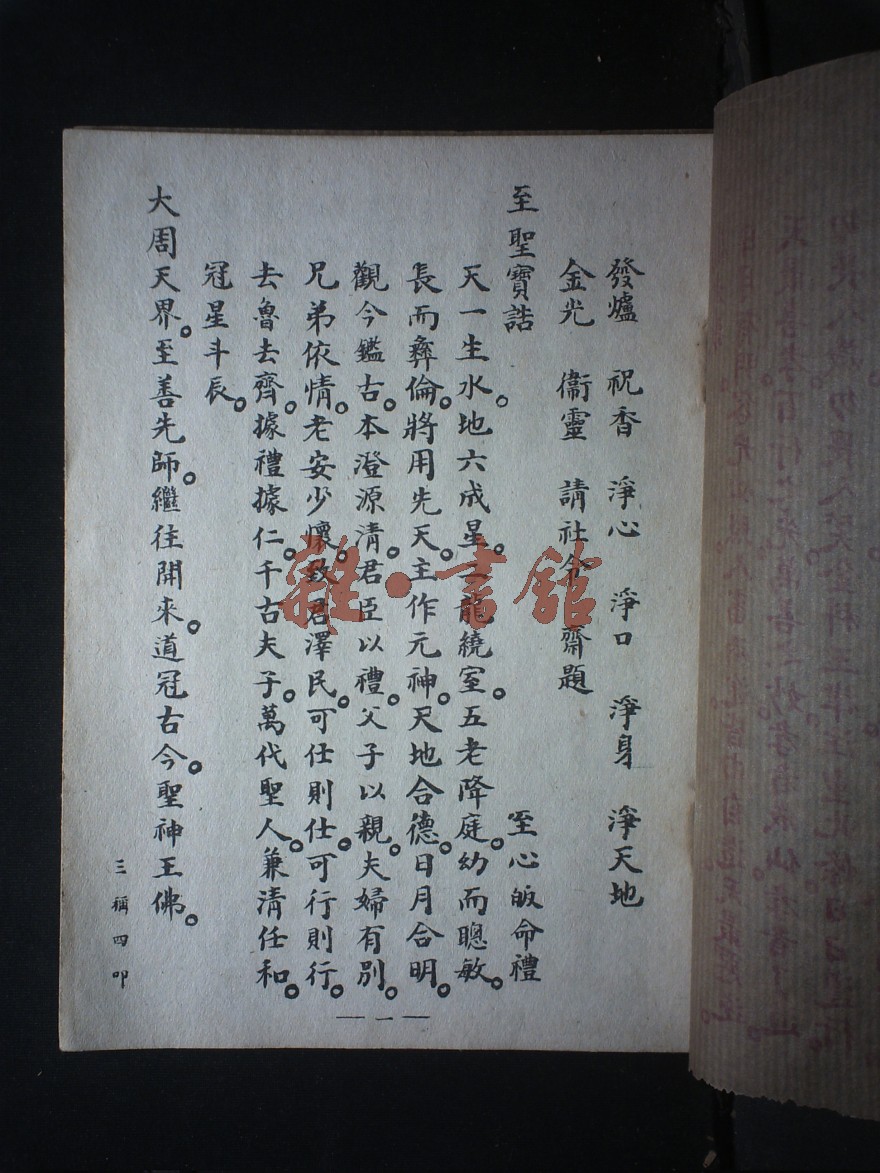 發爐　祝香　淨心　淨口　淨身　淨天地
金光　衞靈　請社令　齋題
至聖寶誥　至心皈命禮
天一生水。地六成星。二龍繞室。五老降庭。幼而聰敏。
長而彝倫。將用先天。主作元神。天地合德。日月合明。
觀今鑑古。本澄源清。君臣以禮。父子以親。夫婦有別。
兄弟依情。老安少懷。致君澤民。可仕則仕。可行則行。
去魯去齊。據禮據仁。千古夫子。萬代聖人。兼清任和。
冠星斗辰。
大周天界。至善先師。繼往開來。道冠古今。聖神王佛。
三稱四叩
一
雜·書館